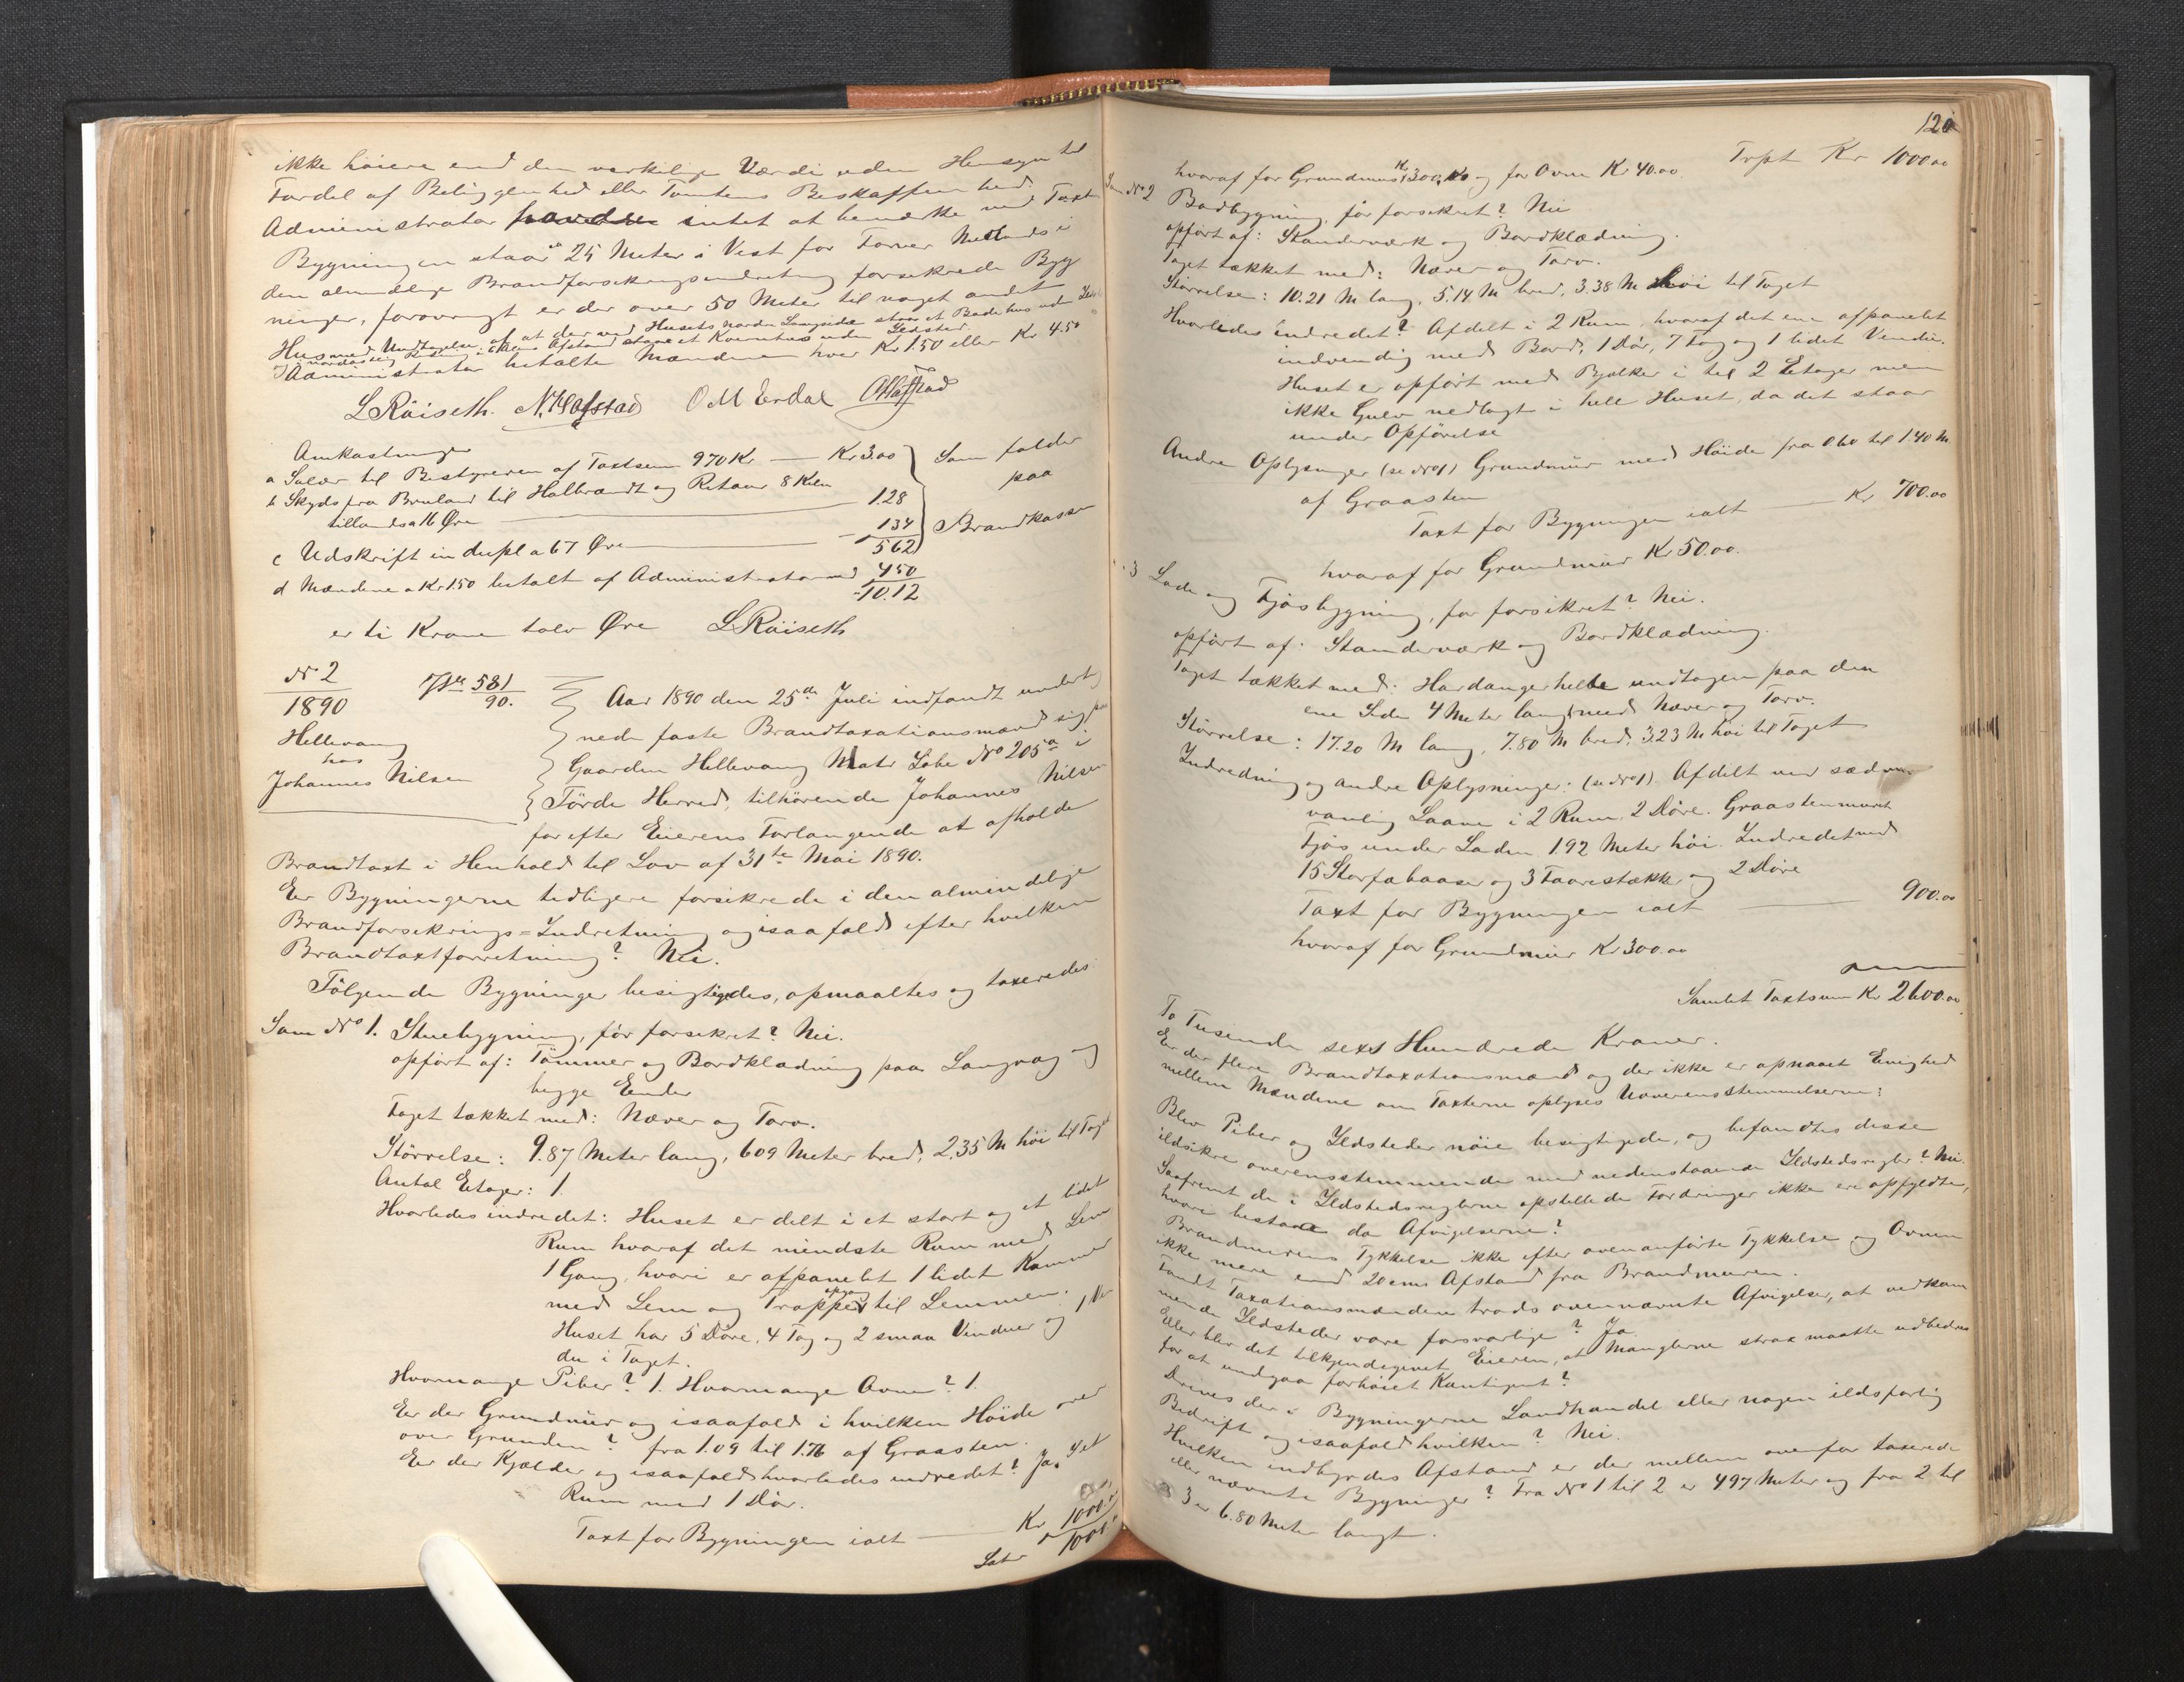 ikke høiere end den verkelige Værdi uden Hensyn til
Fordel af Beliggenhed eller Tomtens Beskaffenhed.
Administrator intet at bemærke med Taxten
Bygningen staar 25 Meter i Vest for Farver Netlands i
den almindelige Brandforsikringsindretning forsikrede Byg
ninger, forøvrigt er der over 50 Meter til noget andet
Hus med Undtagelse af at der ved Husets nordre Langside staar et Badehus uden Ildsted
i nordøstlig Retning i Afstand staar et Kvernhus uden Ildsted.
Administrator betalte Mændene hver Kr 1.50 eller Kr 4.50
L Røiseth. N. Hafstad O M Erdal OHafstad
Omkostninger
a Salær til Bestyreren af Taxtsum 970 Kr — Kr 3.00 Som falder
b Skyds fra Bruland til Halbrændt og Retour 8 Kilm paa
tillands a 16 Øre — 1.28
c Udskrift in duplo a 67 Øre — 134 Brandkassen
562
d Mændene a Kr 1.50 betalt af Administrator med 450
10.12
er ti Kroner tolv Øre L Røiseth
No 2
1890
Jr 581
90.
Hellevang
hos
Johannes Nilsen
Aar 1890 den 25de Juli indfandt underteg
nede faste Brandtaxationsmænd sig paa
Gaarden Hellevang Matr Løbe No 205a i
Førde Herred, tilhørende Johannes Nilsen
for efter Eierens Forlangende at afholde
Brandtaxt i Henhold til Lov af 31te Mai 1890.
Er Bygningerne tidligere forsikrede i den almindelige
Brandforsikrings=Indretning og isaafald efter hvilken
Brandtaxtforretning? Nei.
Følgende Bygninger besigtigedes, opmaaltes og taxeredes
Som No 1. Stuebygning, før forsikret? Nei.
opført af: Tømmer og Bordklædning paa Langvæg og
begge Ender
Taget tækket med: Næver og Torv.
Størrelse: 9.87 Meter lang, 609 Meter bred, 2.35 M høi til Taget
Antal Etager: 1.
Hvorledes indredet: Huset er delt i et stort og et lidet
Rum hvoraf det mindste Rum med Lem
1 Gang, hvori er afpanelet 1 lidet Kammer
med Lem og Trappeopgang til Lemmen.
Huset har 5 Døre, 4 Fag og 2 smaa Vinduer og 1 Vin
du i Taget.
Hvormange Piber? 1. Hvormange Ovne? 1.
Er der Grundmur og isaafald i hvilken Høide over
over Grunden? fra 1.09 til 1.76 af Graasten.
Er der Kjælder og isaafald hvorledes indredet? Ja. Et
Rum med 1 Dør.
Taxt for Bygningen ialt — Kr 1000.00
Latr 1000.
120
Trpt Kr 1000.00
hvoraf for Grundmur Kr 300.00 og for Ovne Kr 40.00.
Som No 2 Bodbygning, før forsikret? Nei
opført af: Standerværk og Bordklædning.
Taget tækket med: Næver og Torv.
Størrelse: 10.21 M lang, 5.14 M bred, 3.38 M høi til Taget
Hvorledes indredet? Afdelt i 2 Rum, hvoraf det ene afpanelet
indvendig med Bord, 1 Dør, 7 Fag og 1 lidet Vindu.
Huset er opført med Bjælker i til 2 Etager men
ikke Gulv nedlagt i hele Huset, da det staar
under Opførelse
Andre Oplysninger (se No 1) Grundmur med Høide fra 0.60 til 1.40 M
af Graasten
Taxt for Bygningen ialt — Kr 700.00
hvoraf for Grundmur Kr 50.00.
3 Lade og Fjøsbygning, før forsikret? Nei.
opført af: Standerværk og Bordklædning.
Taget tækket med: Hardangerhelle undtagen paa den
ene Side 4 Meter langt med Næver og Torv.
Størrelse: 17.20 M lang, 7.80 M bred, 3.23 M høi til Taget
Indredning og andre Oplysninger: (se No 1) Afdelt ved sæd
vanlig Laave i 2 Rum. 2 Døre. Graastenmuret
Fjøs under Laden 1.92 Meter høi. Indredet med
15 Storfæbaase og 3 Faarestække og 2 Døre
Taxt for Bygningen ialt — 900.00
hvoraf for Grundmur Kr 300.00
Samlet Taxtsum Kr 2600.00
To Tusende sexs Hundrede Kroner.
Er der flere Brandtaxationsmænd og der ikke er opnaaet Enighed
mellem Mændene om Taxterne oplyses Uoverensstemmelserne:
Blev Piber og Ildsteder nøie besigtigede, og befandtes disse
ildsikre overensstemmende med nedenstaaende Ildstedsregler? Nei.
Saafremt de i Ildstedsreglerne opstillede Fordringer ikke ere opfyldte,
hvori bestaar da Afvigelserne?
Brandmurens Tykkelse ikke efter ovenanførte Tykkelse og Ovnen
ikke mere end 20 cms Afstand fra Brandmuren.
Fandt Taxationsmændene trods ovennævnte Afvigelser, at vedkom
mende Ildsteder vare forsvarlige? Ja
Eller blev det tilkjendegivet Eieren, at Manglerne strax maatte udbedres
for at undgaa forhøiet Kontigent?
Drives der i Bygningerne Landhandel eller nogen ildsfarlig
Bedrift og isaafald hvilken? Nei.
Hvilken indbyrdes Afstand er der mellem ovenfor taxerede
eller nævnte Bygninger? Fra No 1 til 2 er 497 Meter og fra 2 til
3 er 6.80 Meter langt.